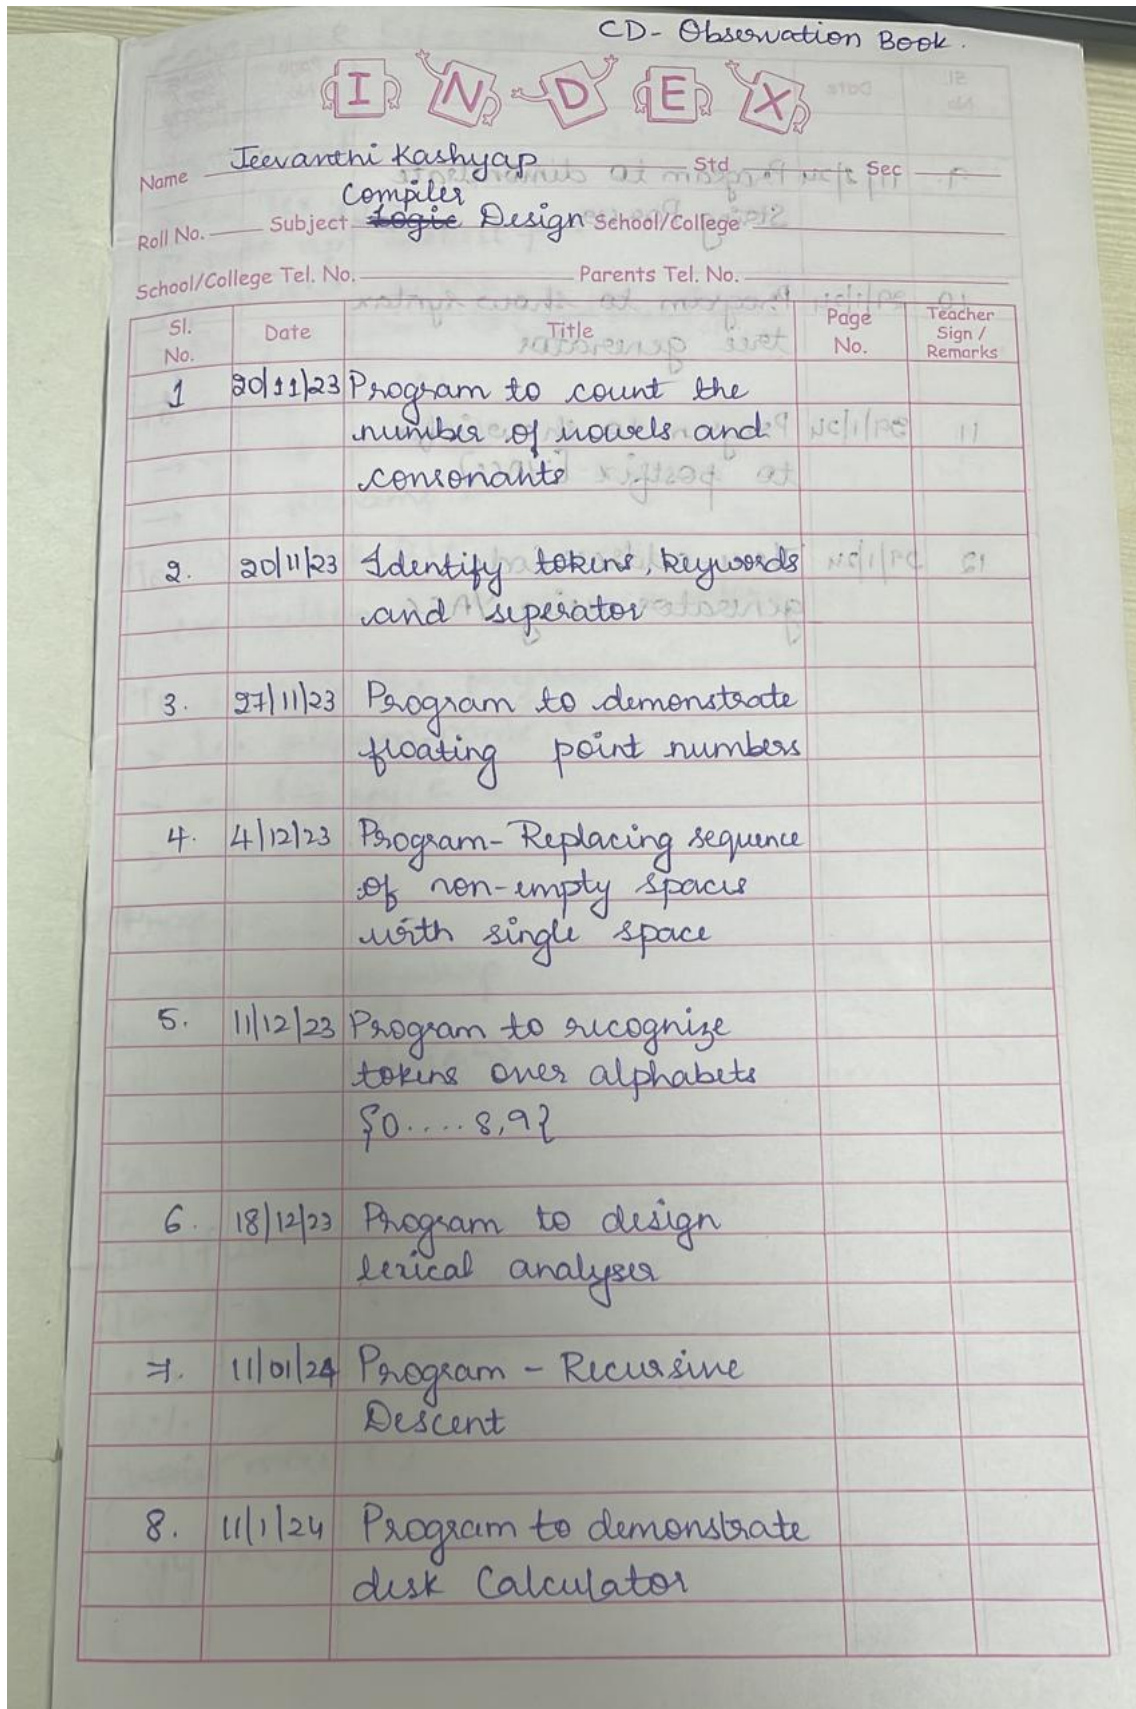 CD- Observation Book.
INDEX
Name Jeevanthi Kashyap Std Sec
Compiler
Roll No. Subject Logic Design School/College
School/College Tel. No. Parents Tel. No.
Sl. No. Date Title Page No. Teacher Sign / Remarks
1 20/11/23 Program to count the
number of vowels and
consonants
2. 20/11/23 Identify tokens, keywords
and seperator
3. 27/11/23 Program to demonstrate
floating point numbers
4. 4/12/23 Program- Replacing sequence
of non-empty spaces
with single space
5. 11/12/23 Program to recognize
tokens over alphabets
{0.... 8,9}
6. 18/12/23 Program to design
lexical analyser
7. 11/01/24 Program - Recursive
Descent
8. 11/1/24 Program to demonstrate
desk Calculator